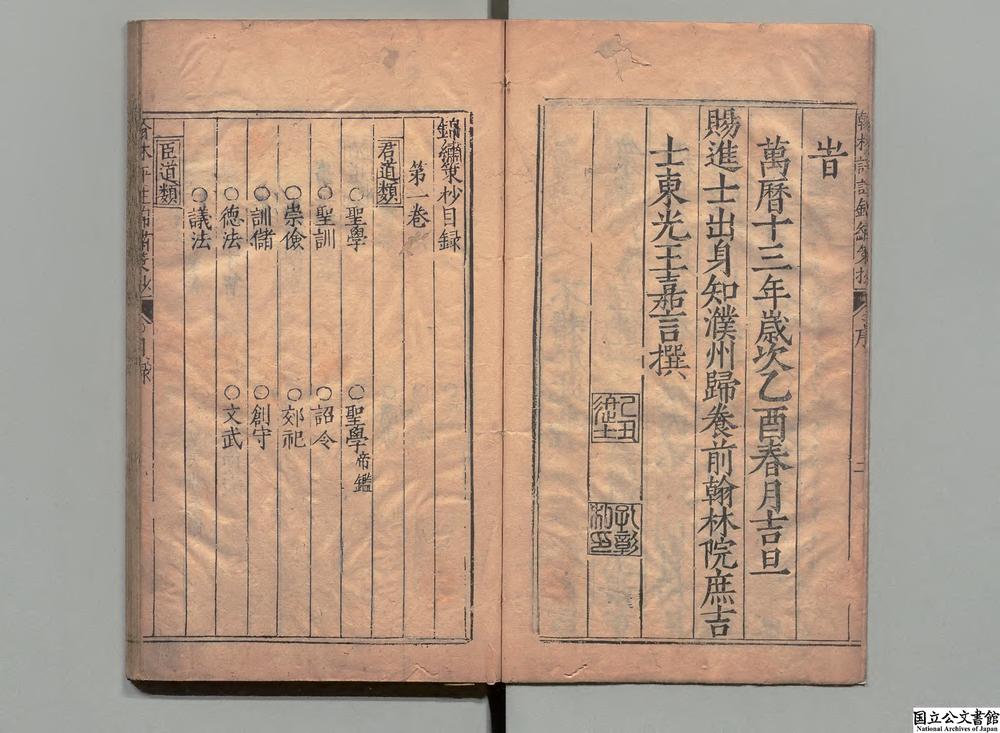 旹
萬曆十三年歲次乙酉春月吉旦
賜進士出身知濮州歸養前翰林院庶吉
士東光王嘉言撰
己丑進士
錦繡策抄目録
第一卷
君道類
○聖學 ○聖學帝鑑
○聖訓 ○詔令
○崇儉 ○郊祀
○訓儲 ○創守
○德法 ○文武
○議法
臣道類
国立公文書館
National Archives of Japan